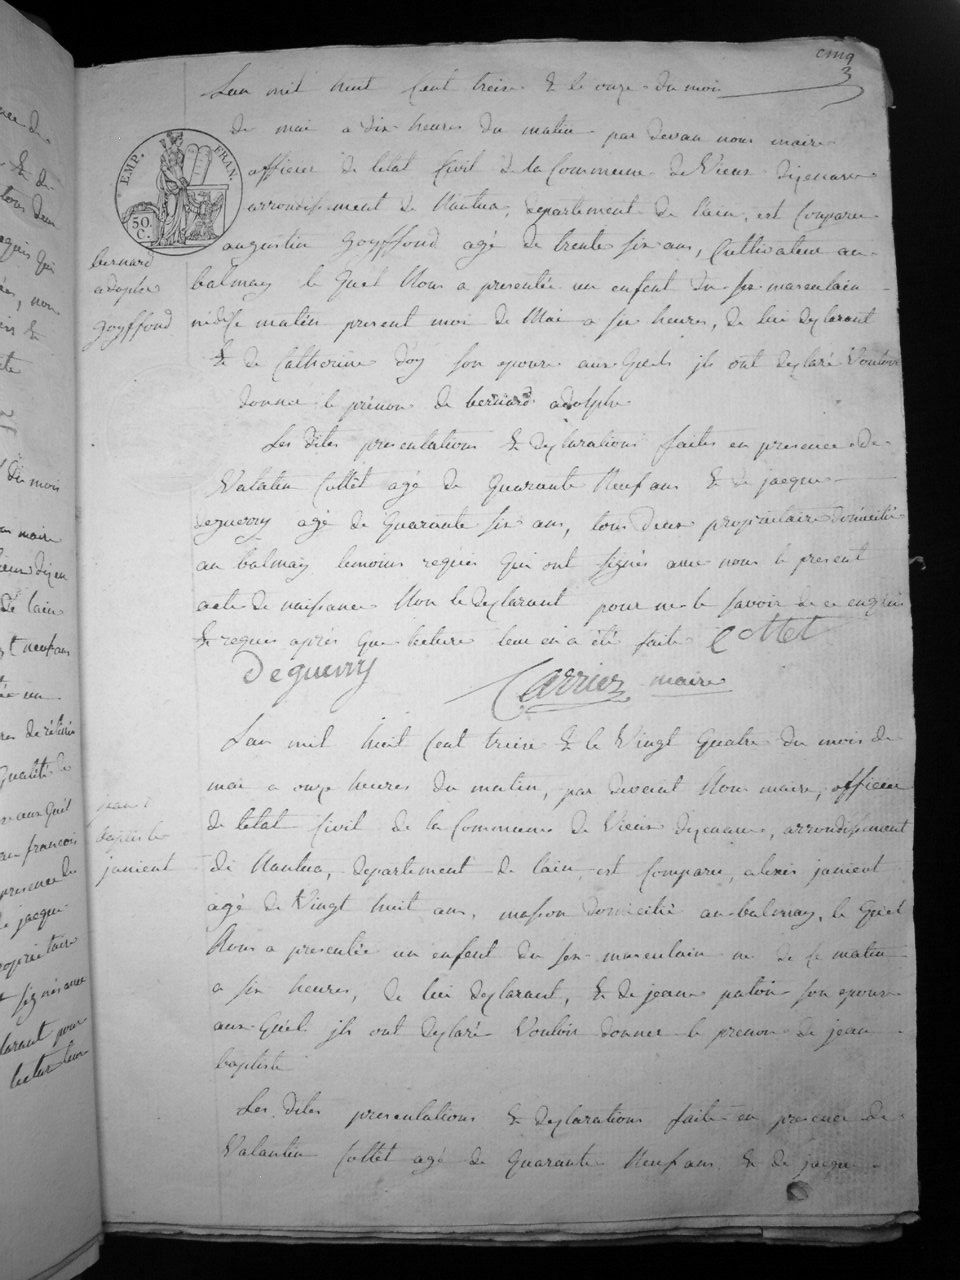 cinq
3
Lan mil huit Cent treise & le onze du mois
de mai a dix heures du matin par devan nous maire
officier de létat Civil de la Commune de Vieux dizenave
arrondissement de Nantua, departement de lain, est Comparu
augustin Goyffond agé de trente six ans, Cultivateur au
balmay le quel Nous a presentée un enfent du sex masculain
né di Se matin present moi de Mai a six heures, de lui deylarant
& de Catherine doy son epouse aux quels jls ont deylaré Vouloir
donner le prénon de bernard adolphe
Les dites presentations & deylarations faites en presence de
Valatin Cottêt agé de quarante Neuf ans & de jacque
deguerry agé de quarante six ans, tous deux proprietaire domicilié
au balmay temoins requis qui ont signés avec nous le present
acte de naissance Non le deylarant pour ne le savoir de ce enquis
& requis aprés que lecture leur en a été faite Cottet
Deguerry Carrier maire
EMP. FRAN.
50.
C.
bernard
adophe
Goyffond
Lan mil huit Cent treise & le Vingt quatre du mois de
mai a onze heures du matin, par devent Nous maire, officier
de létat Civil de la Commune de Vieux dizenave, arrondissement
de Nantua, departement de lain, est Comparu, alexis janient
agé de Vingt huit ans, masson domicilié au balmay, le quel
Nous a presentée un enfent du sex masculain né de Se matin
a six heures, de lui deylarant, & de jeane patoir son epouse
aux quel jls ont deylaré Vouloir donner le prenon de jean
baptiste
Les dites presentations & deylarations faite en presence de
Valantin Cottêt agé de quarante Neuf ans & de jacque
jean
baptiste
janient